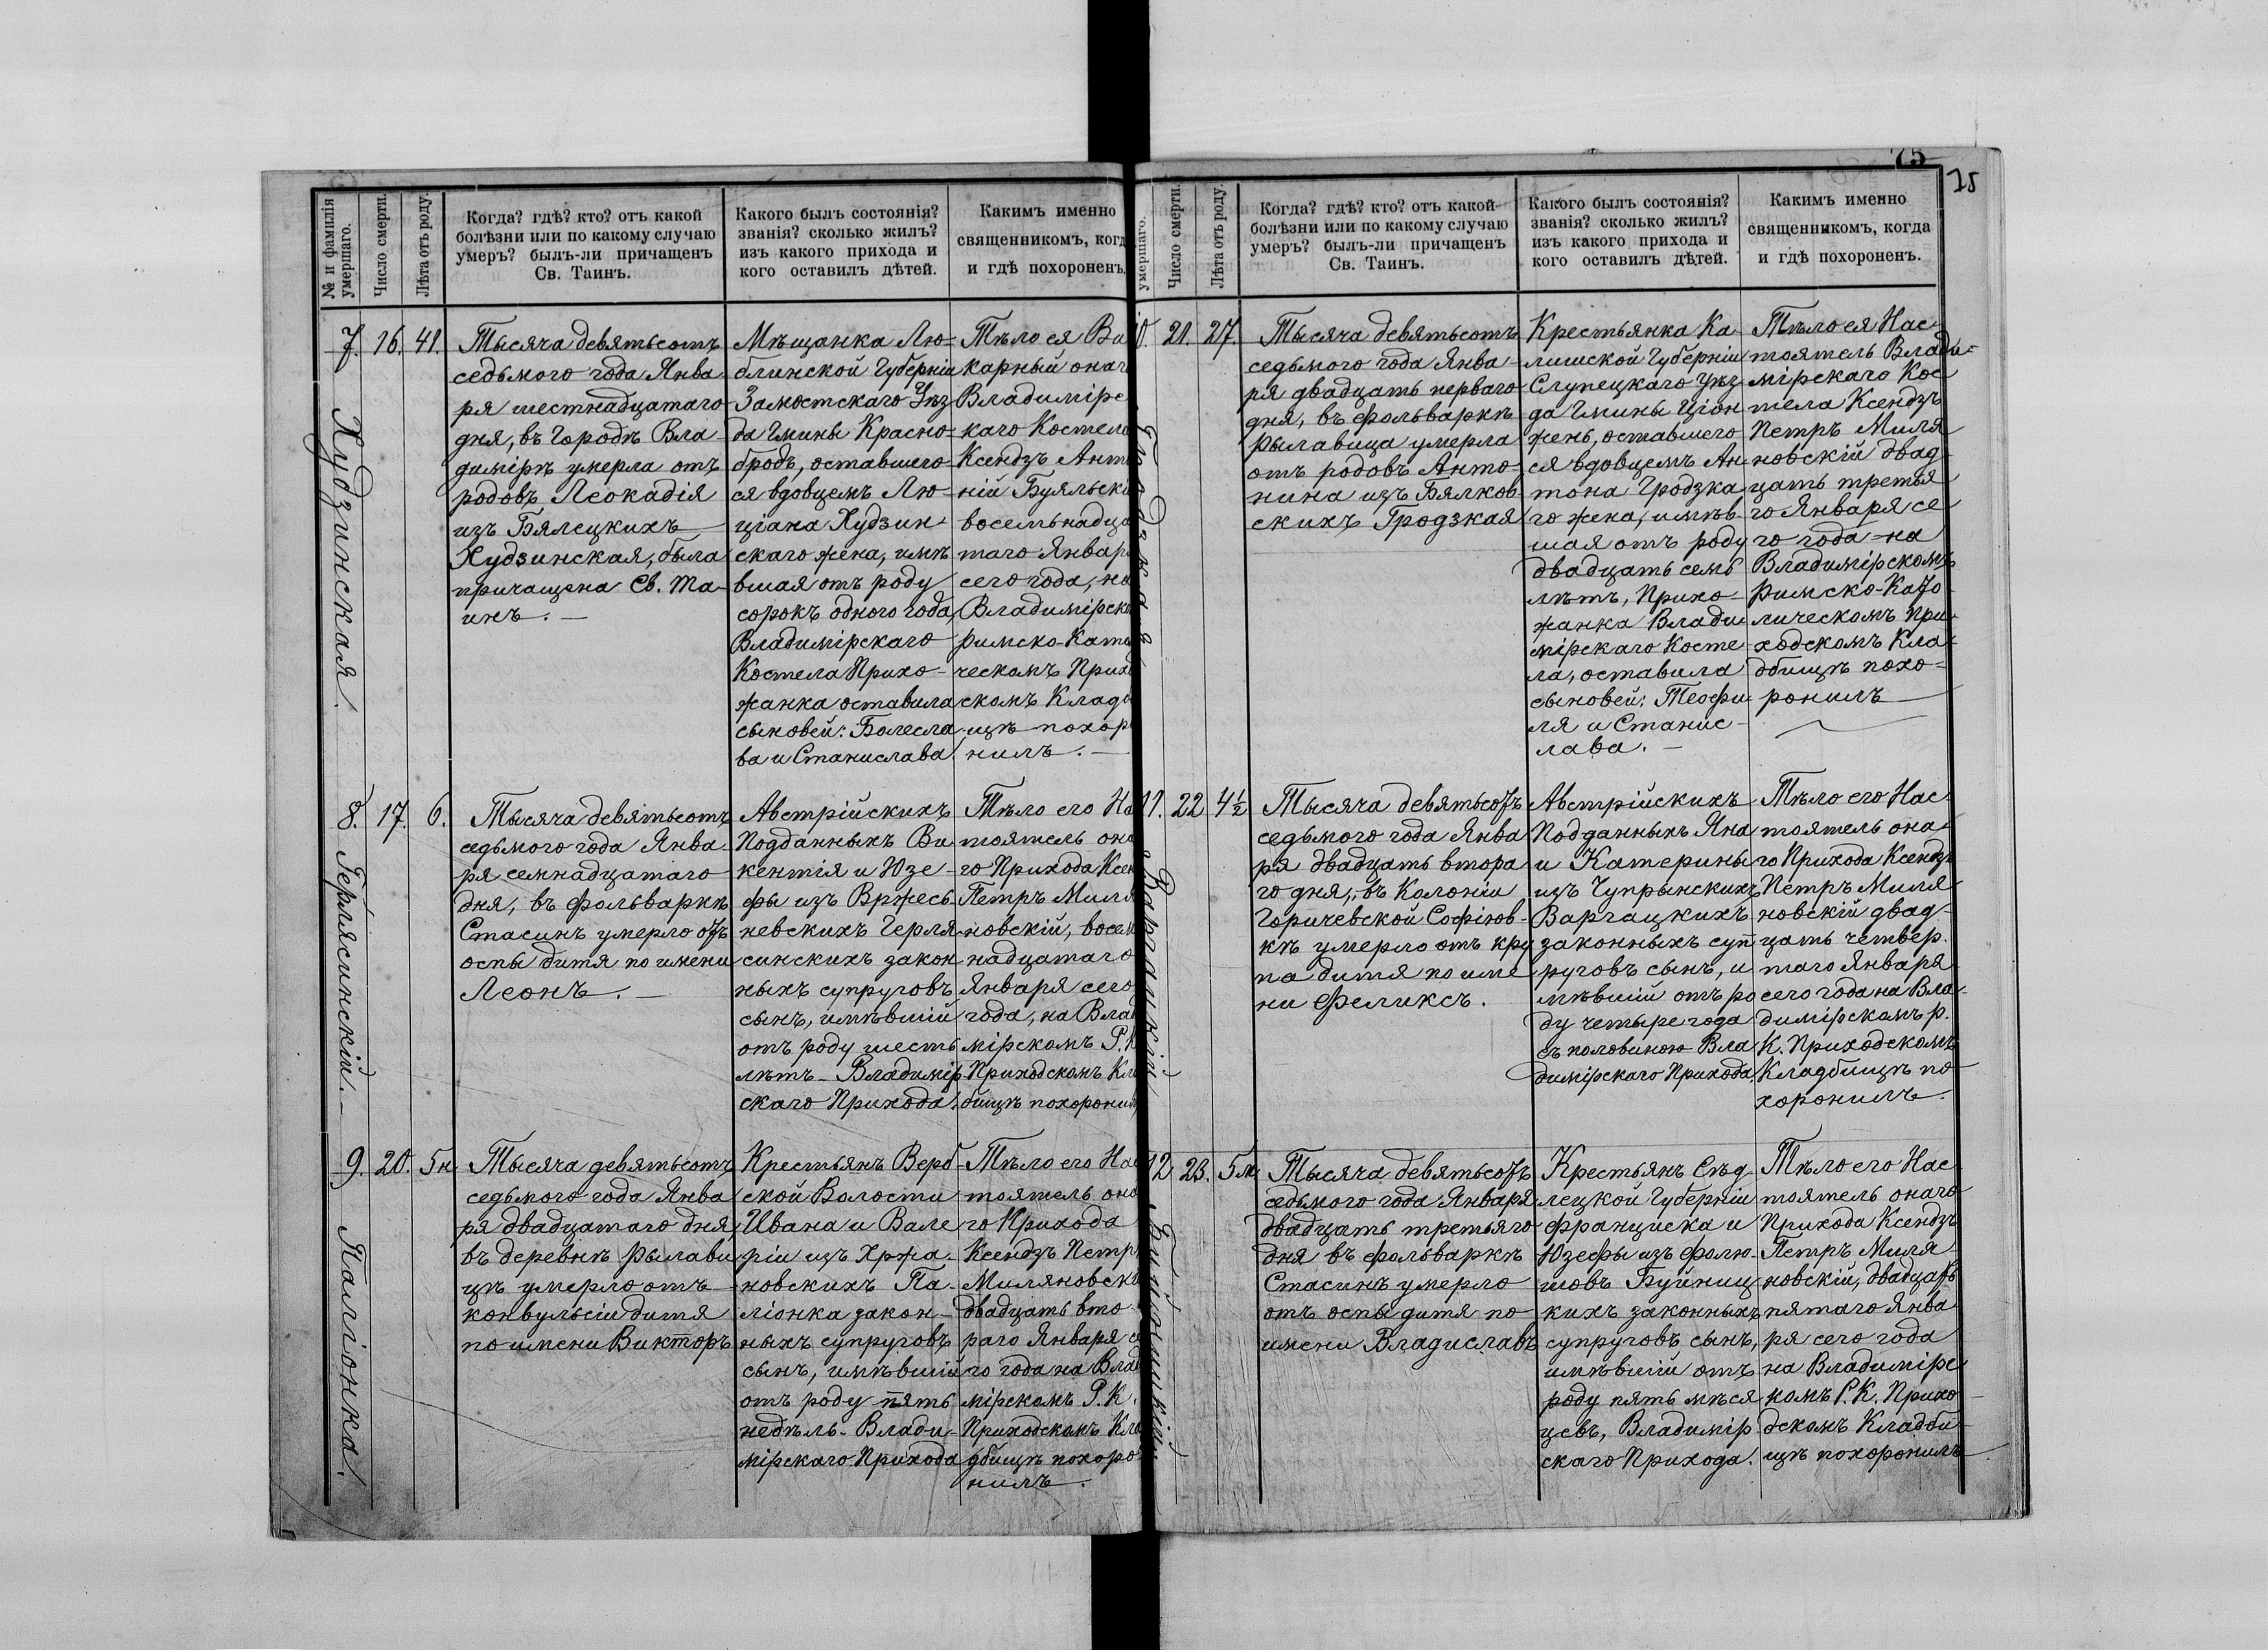 75
75
№ и фамилія
умершаго.
Число смерти.
Лѣта отъ роду.
Когда? гдѣ? кто? отъ какой
болѣзни или по какому случаю
умеръ? былъ-ли причащенъ
Св. Таинъ.
Какого былъ состоянія?
званія? сколько жилъ?
изъ какого прихода и
кого оставилъ дѣтей.
Какимъ именно
священникомъ, когд
и гдѣ похороненъ.
7.
Худзинская.
16.
41.
Тысяча девятьсотъ
седьмого года Янва-
ря шестнадцатаго
дня, въ Городѣ Вла-
димірѣ умерла отъ
родовъ Леокадія
изъ Бялецкихъ
Худзинская, была
причащена Св. Та-
инъ. —
Мѣщанка Лю-
блинской Губерніи
Замостскаго Уѣз
да Гмины Красно-
бродъ, оставшего-
ся вдовцемъ Лю-
ціана Худзин-
скаго жена, имѣ
вшая отъ роду
сорокъ одного года,
Владимірскаго
Костела Прихо-
жанка оставила
сыновей: Болесла
ва и Станислава.
Тѣло ея Ви
карный онаг
Владимірс
каго Костела
Ксендзъ Анто
ній Буяльскі
восемьнадца
таго Январ
сего года, на
Владимірско
римско-Като
ческомъ Прихо
скомъ Кладб
ищѣ похоро
нилъ. —
8.
Герлясинскій. —
17.
6.
Тысяча девятьсотъ
седьмого года Янва-
ря семнадцатаго
дня, въ фольваркѣ
Стасинъ умерло отъ
оспы дитя по имени
Леонъ. —
Австрійскихъ
Подданныхъ Ви
кентія и Юзе-
фы изъ Вржесь-
невскихъ Герля-
синскихъ закон
ныхъ супруговъ
сынъ, имѣвшій
отъ роду шесть
лѣтъ - Владимір
скаго Прихода.
Тѣло его На
тоятель она
го Прихода Ксен
Петръ Миля
новскій, восем
надцатаго
Января сего
года, на Влад
мірскомъ Р. К
Приходскомъ Кла
бищѣ похоронил
9.
Паліонка.
20.
5 н.
Тысяча девятьсотъ
седьмого года Янва
ря двадцатаго дня,
въ деревнѣ Рылави
цѣ умерло отъ
конвульсіи дитя
по имени Викторъ
Крестьянъ Верб-
ской Волости
Ивана и Вале
ріи изъ Хржа-
новскихъ Па-
ліонка закон-
ныхъ супруговъ
сынъ, имѣвшій
отъ роду пять
недѣль - Влади-
мірскаго Прихода
Тѣло его Нас
тоятель она
го Прихода
Ксендзъ Петр
Миляновскі
двадцать вто
раго Января се
го года на Влад
мірскомъ Р. К.
Приходскомъ Кла
дбищѣ похоро
нилъ.
умершаго.
Число смерти.
Лѣта отъ роду.
Когда? гдѣ? кто? отъ какой
болѣзни или по какому случаю
умеръ? былъ-ли причащенъ
Св. Таинъ.
Какого былъ состоянія?
званія? сколько жилъ?
изъ какого прихода и
кого оставилъ дѣтей.
Какимъ именно
священникомъ, когда
и гдѣ похороненъ.
0.
Гродзкая
21.
27.
Тысяча девятьсотъ
седьмого года Янва-
ря двадцать перваго
дня, въ фольваркѣ
Рылавица умерла
отъ родовъ Анто-
нина изъ Бялков
скихъ Гродзкая
Крестьянка Ка-
лишской Губерніи
Слупецкаго Уѣз
да Гмины Ціон
жень, оставшего
ся вдовцемъ Ан
тона Гродзка
го жена, имѣв-
шая отъ роду
двадцать семь
лѣтъ, Прихо-
жанка Влади
мірскаго Косте
ла, оставила
сыновей: Теофи
ля и Станис-
лава. —
Тѣло ея Нас
тоятель Влади-
мірскаго Кос
тела Ксендзъ
Петръ Миля
новскій двад-
цать третья
го Января се
го года на
Владимірскомъ
Римско-Като-
лическомъ При
ходскомъ Кла-
дбищѣ похо-
ронилъ
11.
Варгацкій
22
4 ½
Тысяча девятьсотъ
седьмого года Янва
ря двадцать втора
го дня, въ Колоніи
Горичевской Софіюв-
кѣ умерло отъ кру
па дитя по име
ни Феликсъ.
Австрійскихъ
Подданныхъ Яна
и Катерины
изъ Чупрынскихъ
Варгацкихъ
законныхъ суп
руговъ сынъ, и
мѣвшій отъ ро
ду четыре года
съ половиною Вла
димірскаго Прихода.
Тѣло его Нас-
тоятель она-
го Прихода Ксендзъ
Петръ Миля
новскій двад-
цать четвер-
таго Января
сего года на Вла-
димірскомъ р.
К. Приходскомъ
Кладбищѣ по-
хоронилъ.
12
Буйницкій.
23.
5 м.
Тысяча девятьсотъ
седьмого года Января
двадцать третьяго
дня въ фольваркѣ
Стасинѣ умерло
отъ оспы дитя по
имени Владиславъ
Крестьянъ Сѣд-
лецкой Губерніи
Франциска и
Юзефы изъ Фолю-
шовъ Буйниц
кихъ законныхъ
супруговъ сынъ,
имѣвшій отъ
роду пять мѣся
цевъ, Владимір
скаго Прихода.
Тѣло его Нас
тоятель онаго
Прихода Ксендзъ
Петръ Миля-
новскій, двадцать
пятаго Янва
ря сего года
на Владимірс
комъ Р. К. Прихо-
дскомъ Кладби-
щѣ похоронилъ.